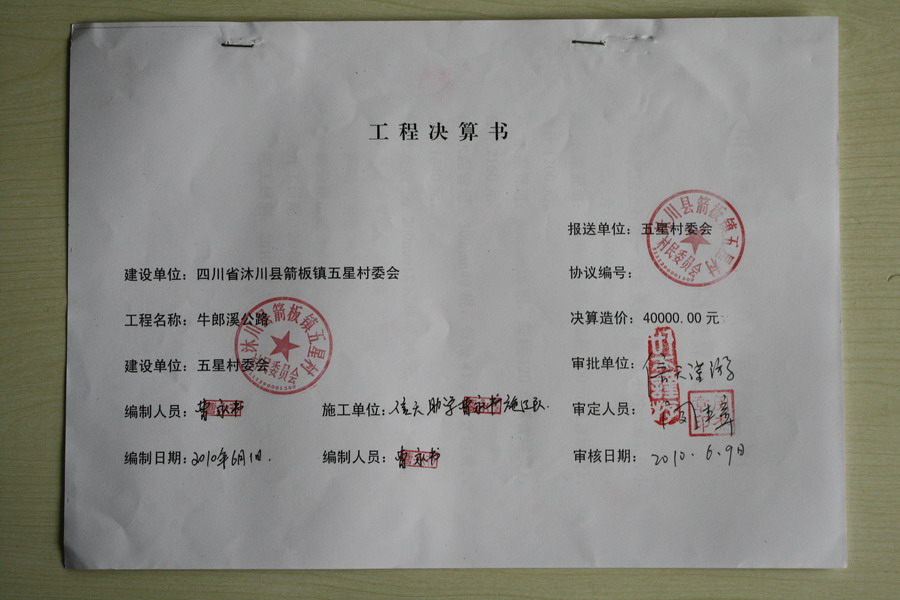 工程决算书
报送单位：五星村委会
建设单位：四川省沐川县箭板镇五星村委会
协议编号：
工程名称：牛郎溪公路
决算造价：40000.00元
建设单位：五星村委会
审批单位：
编制人员：曾永书
施工单位：曾永书施工队
审定人员：
编制日期：2010年6月1日.
编制人员：曾永书
审核日期：2010.6.9日
沐川县箭板镇五星村
村民委员会
沐川县箭板镇五星村
村民委员会